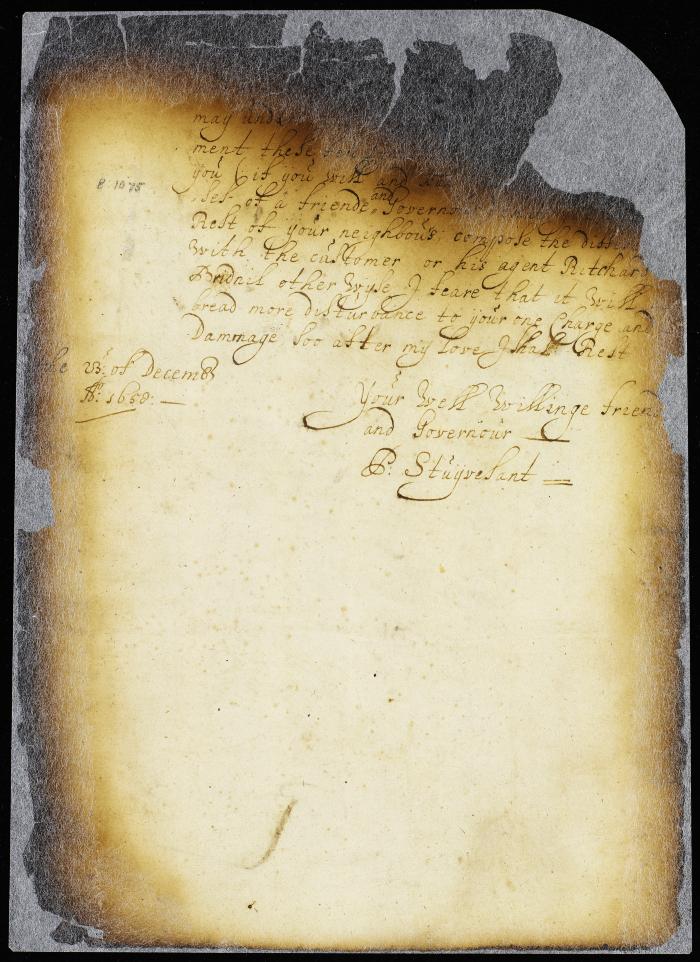 may unde
ment these
you (if you will and
of a friende and Governo
Rest of your neighbours, compose the diffe
With the customer or his agent Ritchar
Bridnil other Wyse I feare that it Will
bread more disturbance to your one Charge and
Dammage Soo after my Love I shall Rest
the 23: of Decemb
Ao: 1658:
Your Well Willinge friend
and Governour
P: Stuÿvesant